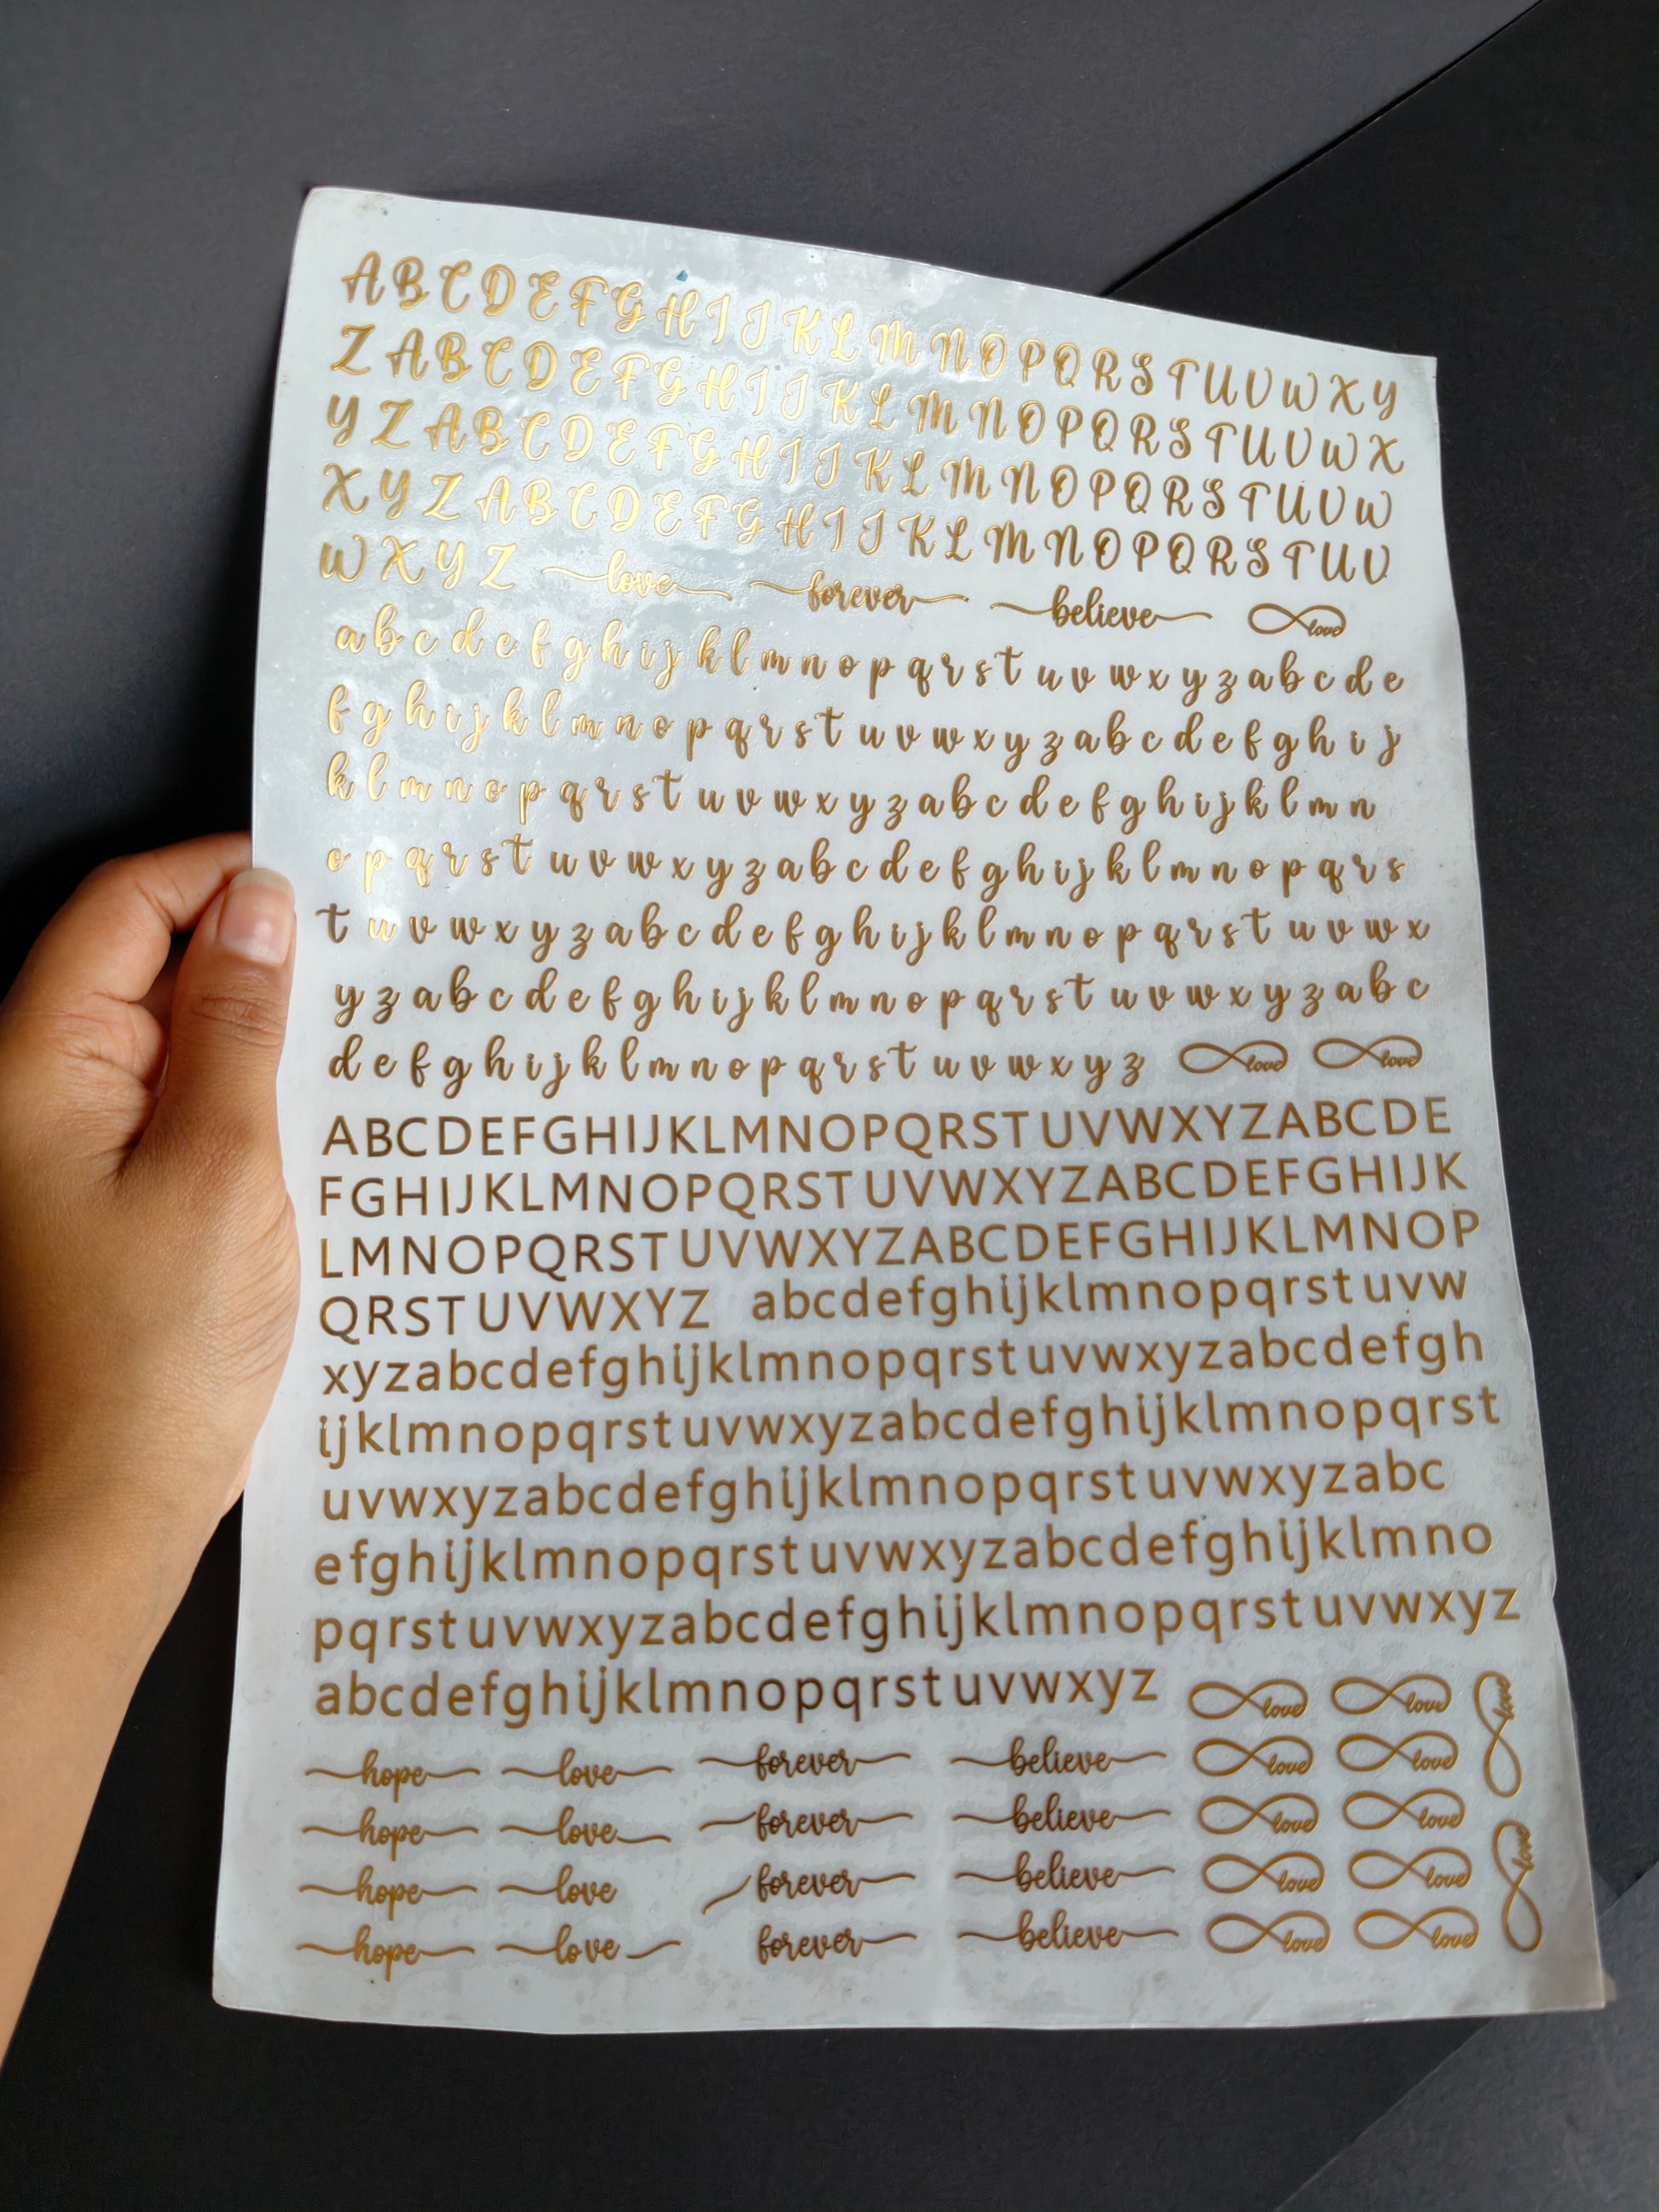 A B C D E F G H I J K L M N O P Q R S T U V W X Y
Z A B C D E F G H I J K L M N O P Q R S T U V W X
Y Z A B C D E F G H I J K L M N O P Q R S T U V W
X Y Z A B C D E F G H I J K L M N O P Q R S T U V
W X Y Z love forever believe love
a b c d e f g h i j k l m n o p q r s t u v w x y z a b c d e
f g h i j k l m n o p q r s t u v w x y z a b c d e f g h i j
k l m n o p q r s t u v w x y z a b c d e f g h i j k l m n
o p q r s t u v w x y z a b c d e f g h i j k l m n o p q r s
t u v w x y z a b c d e f g h i j k l m n o p q r s t u v w x
y z a b c d e f g h i j k l m n o p q r s t u v w x y z a b c
d e f g h i j k l m n o p q r s t u v w x y z love love
ABCDEFGHIJKLMNOPQRSTUVWXYZABCDE
FGHIJKLMNOPQRSTUVWXYZABCDEFGHIJK
LMNOPQRSTUVWXYZABCDEFGHIJKLMNOP
QRSTUVWXYZ abcdefghijklmnopqrstuvw
xyzabcdefghijklmnopqrstuvwxyzabcdefgh
ijklmnopqrstuvwxyzabcdefghijklmnopqrst
uvwxyzabcdefghijklmnopqrstuvwxyzabc
efghijklmnopqrstuvwxyzabcdefghijklmno
pqrstuvwxyzabcdefghijklmnopqrstuvwxyz
abcdefghijklmnopqrstuvwxyz love love love
hope love forever believe love love
hope love forever believe love love
hope love forever believe love love love
hope love forever believe love love